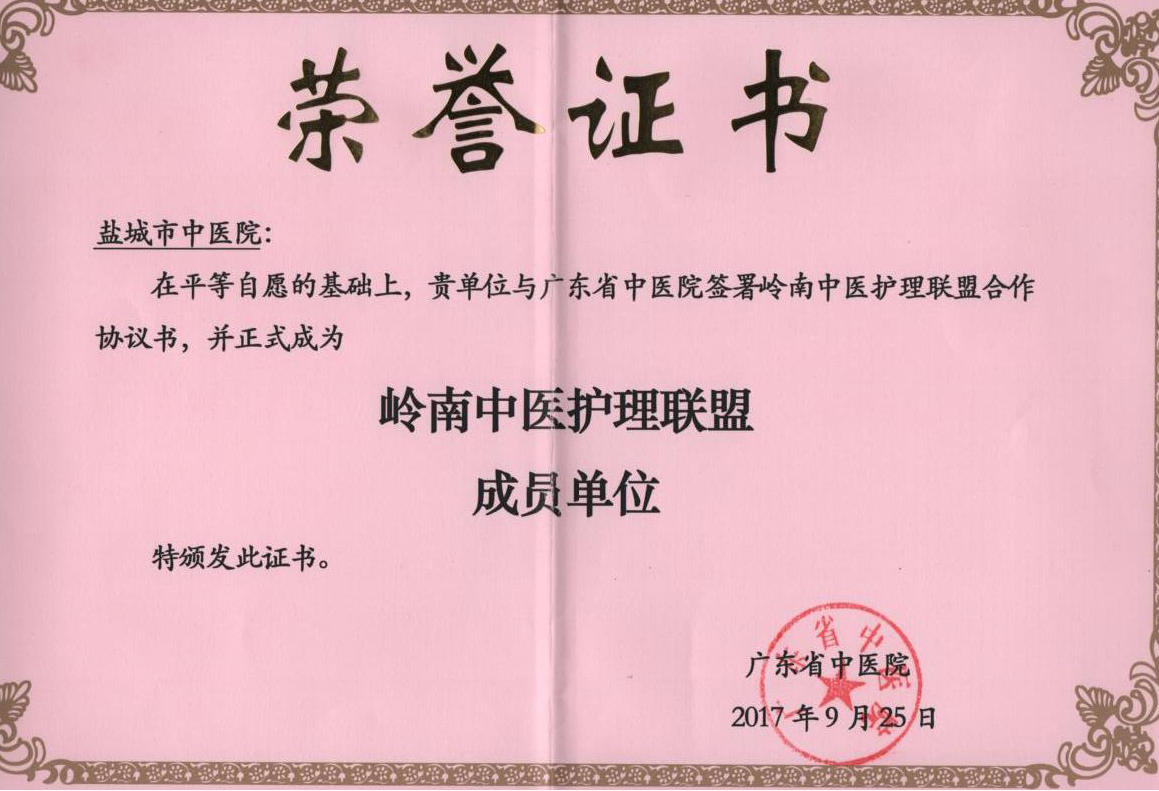 荣誉证书
盐城市中医院：
在平等自愿的基础上，贵单位与广东省中医院签署岭南中医护理联盟合作
协议书，并正式成为
岭南中医护理联盟
成员单位
特颁发此证书。
广东省中医院
2017年9月25日
广东省中医院